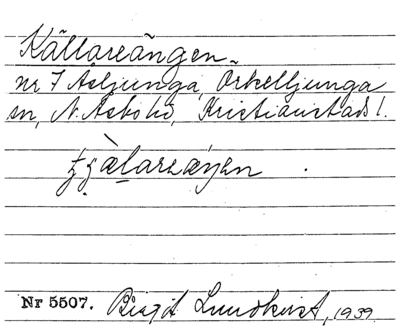 Källareängen.
nr 7 Åsljunga, Örkelljunga
sn, N. Åsbo hd, Kristianstads l.
Nr 5507. Birgit Lundkvist, 1939.